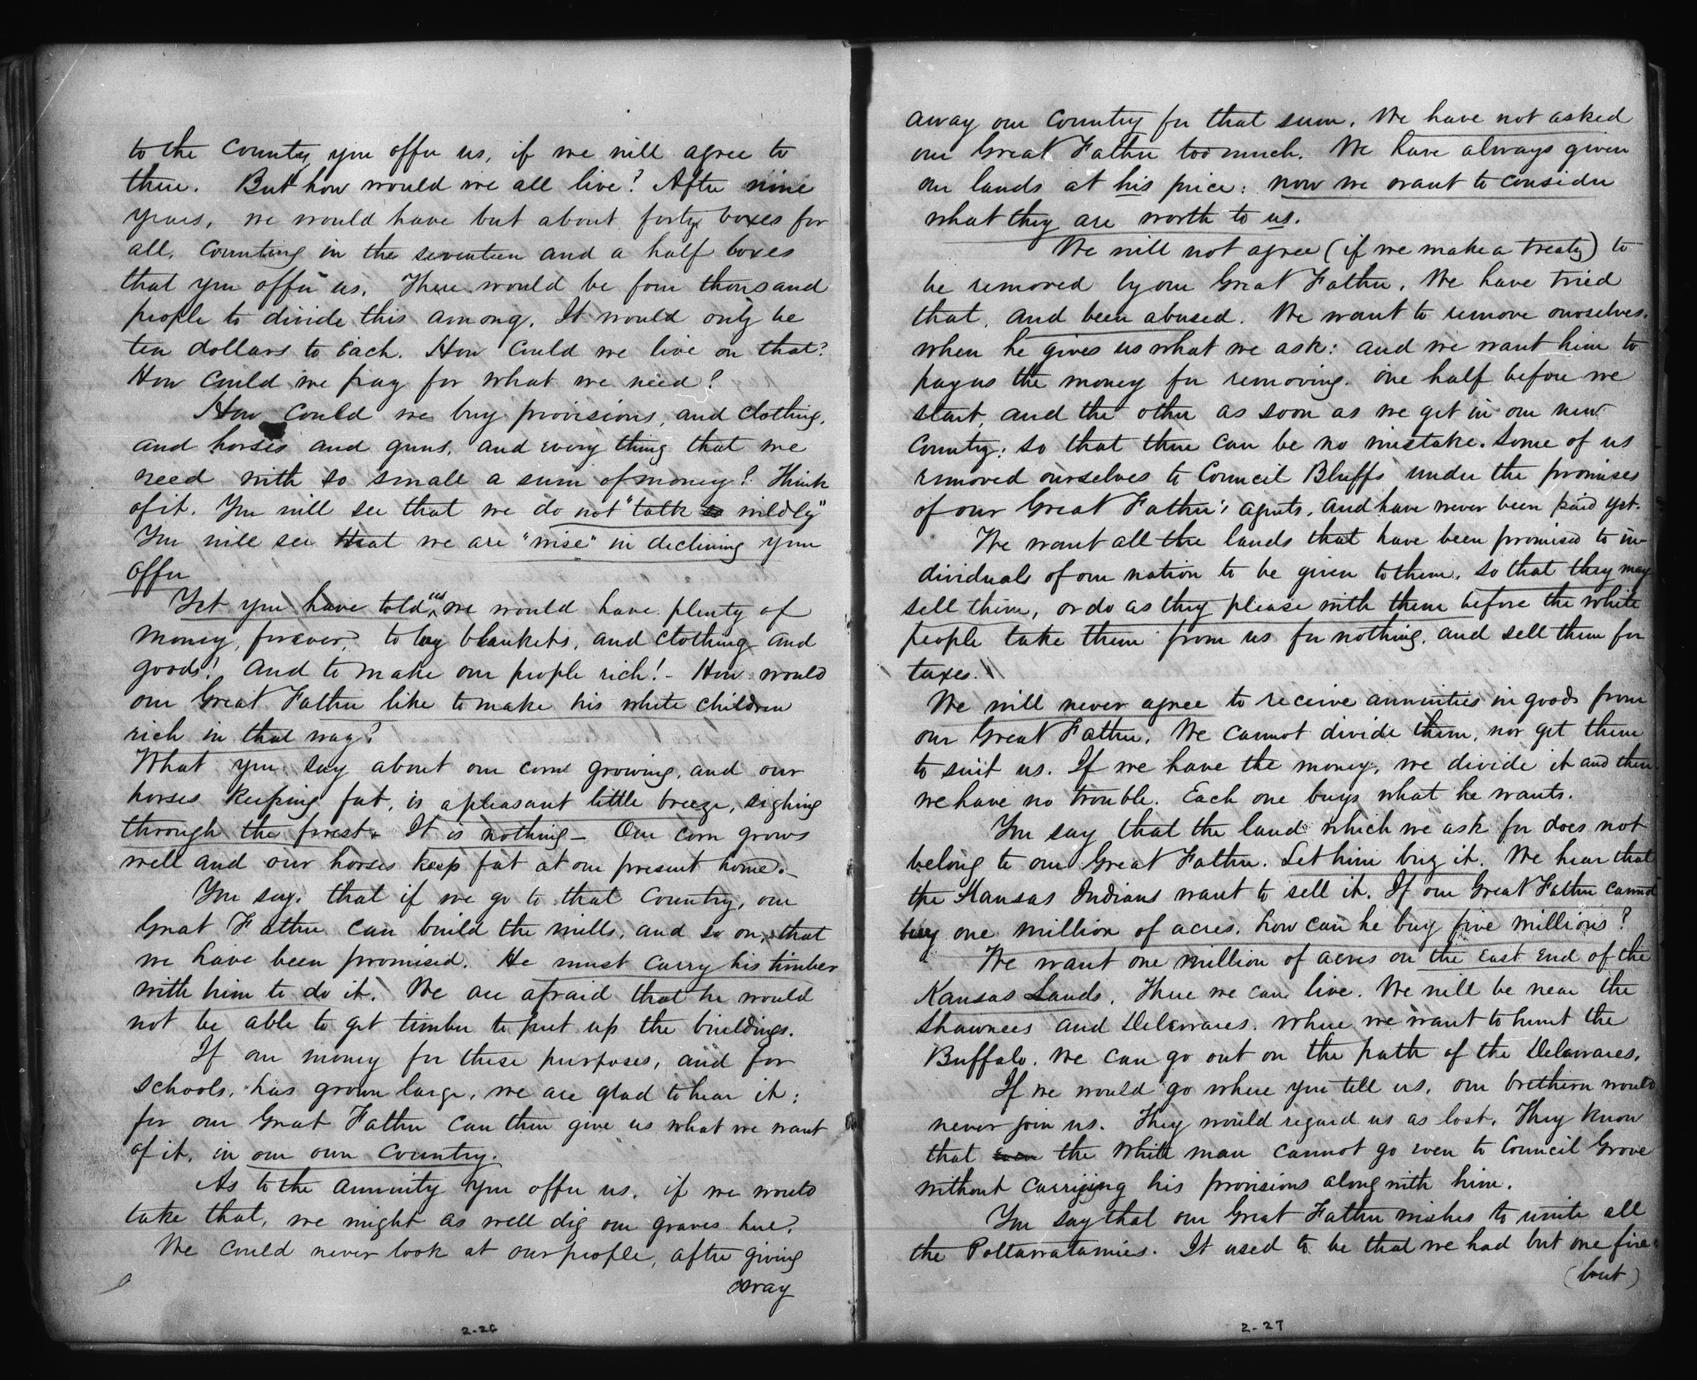 to the country you offer us, if we will agree to
there. But how would we all live? After nine
years, we would have but about forty boxes for
all, counting in the seventeen and a half boxes
that you offer us. There would be four thousand
people to divide this among. It would only be
ten dollars to each. How could we live on that?
How could we pay for what we need?
How could we buy provisions, and clothing,
and horses and guns, and every thing that we
need with so small a sum of money? Think
of it. You will see that we do not "talk wildly"
You will see that we are "wise" in declining your
offer
Yet you have told us we would have plenty of
money, forever, to buy blankets, and clothing and
goods! And to make our people rich! - How would
our Great Father like to make his white children
rich in that way?
What you say about our corn growing, and our
horses keeping fat, is a pleasant little breeze, sighing
through the forest. It is nothing - Our corn grows
well and our horses keep fat at our present home. -
You say, that if we go to that country, our
Great Father can build the mills, and so on, that
we have been promised. He must carry his timber
with him to do it. We are afraid that he would
not be able to get timber to put up the buildings.
If our money for these purposes, and for
schools, has grown large, we are glad to hear it;
for our Great Father can then give us what we want
of it, in our own country.
As to the annuity you offer us, if we would
take that, we might as well dig our graves here.
We could never look at our people, after giving
away
2-26
away our country for that sum. We have not asked
our Great Father too much. We have always given
our lands at his price: now we want to consider
what they are worth to us.
We will not agree (if we make a treaty) to
be removed by our Great Father. We have tried
that, and been abused. We want to remove ourselves,
when he gives us what we ask: and we want him to
pay us the money for removing, one half before we
start, and the other as soon as we get in our new
country; so that there can be no mistake. Some of us
removed ourselves to Council Bluffs under the promises
of our Great Father's agents, and have never been paid yet.
We want all the lands that have been promised to in-
dividuals of our nation to be given to them, so that they may
sell them, or do as they please with them before the white
people take them from us for nothing, and sell them for
taxes.
We will never agree to receive annuities in goods from
our Great Father. We cannot divide them, nor get them
to suit us. If we have the money, we divide it and then
we have no trouble. Each one buys what he wants.
You say that the land which we ask for does not
belong to our Great Father. Let him buy it. We hear that
the Kansas Indians want to sell it. If our Great Father cannot
buy one million of acres, how can he buy five millions?
We want one million of acres on the East End of the
Kansas Lands. There we can live. We will be near the
Shawnees and Delawares. When we want to hunt the
Buffalo, we can go out on the path of the Delawares.
If we would go where you tell us, our brethern would
never join us. They would regard us as lost. They know
that even the white man cannot go even to Council Grove
without carrying his provisions along with him.
You say that our Great Father wishes to unite all
the Pottawatamies. It used to be that we had but one fire;
(but)
2-27